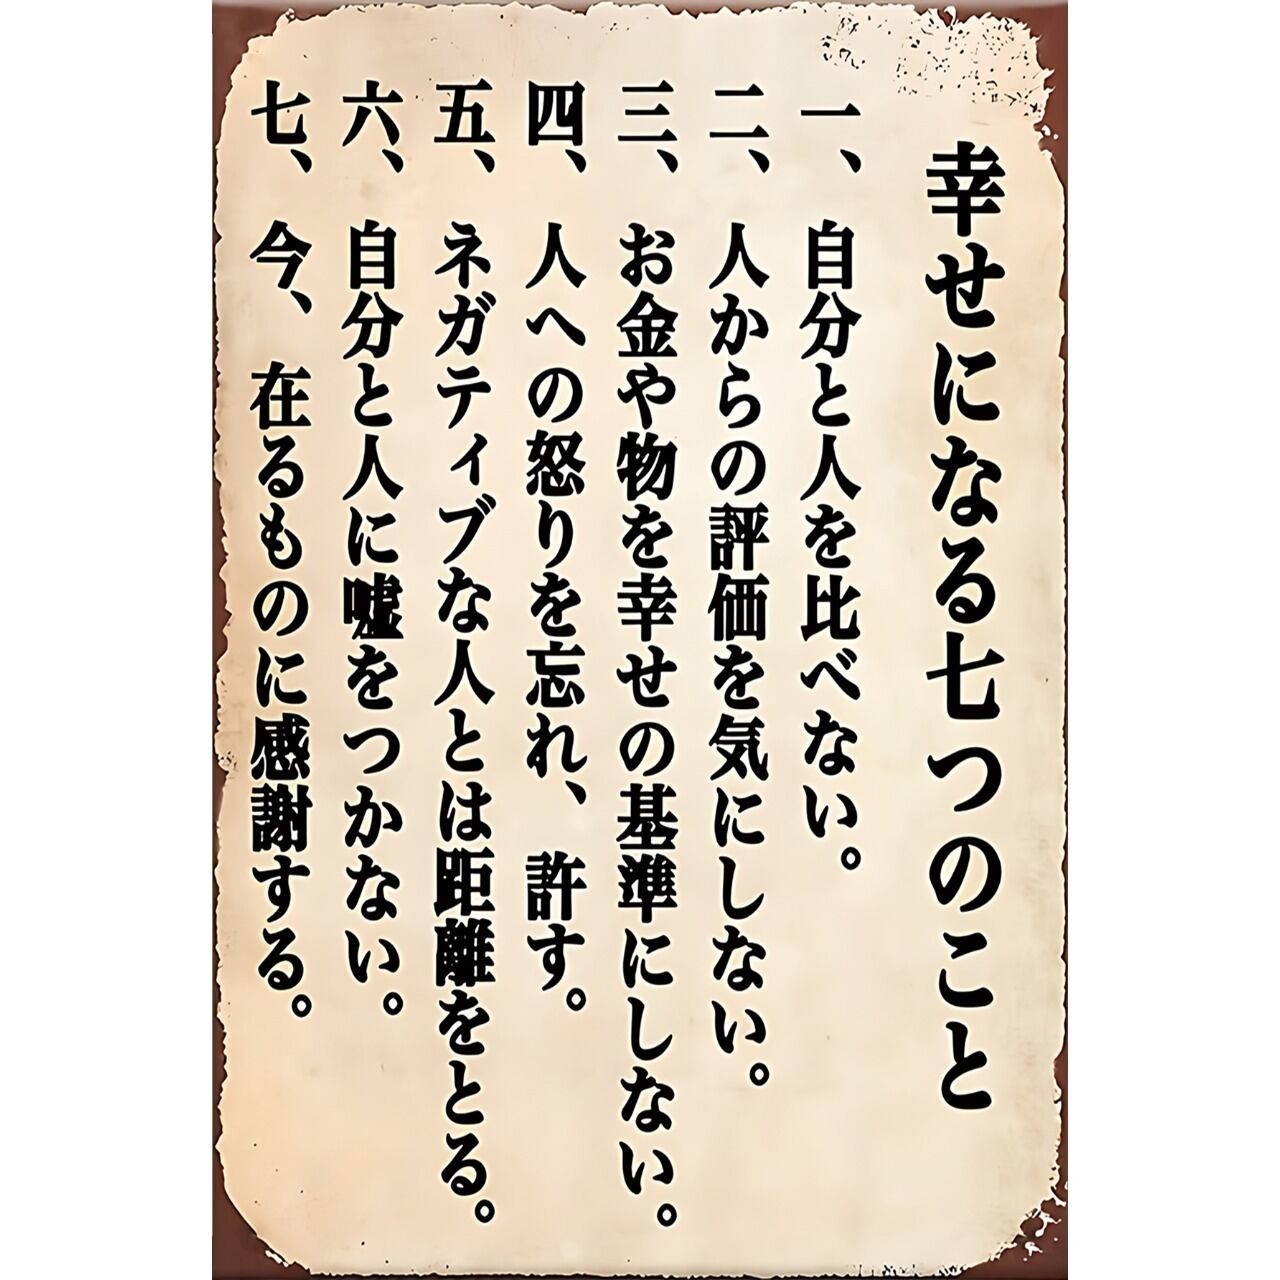 幸せになる七つのこと
一、自分と人を比べない。
二、人からの評価を気にしない。
三、お金や物を幸せの基準にしない。
四、人への怒りを忘れ、許す。
五、ネガティブな人とは距離をとる。
六、自分と人に嘘をつかない。
七、今、在るものに感謝する。